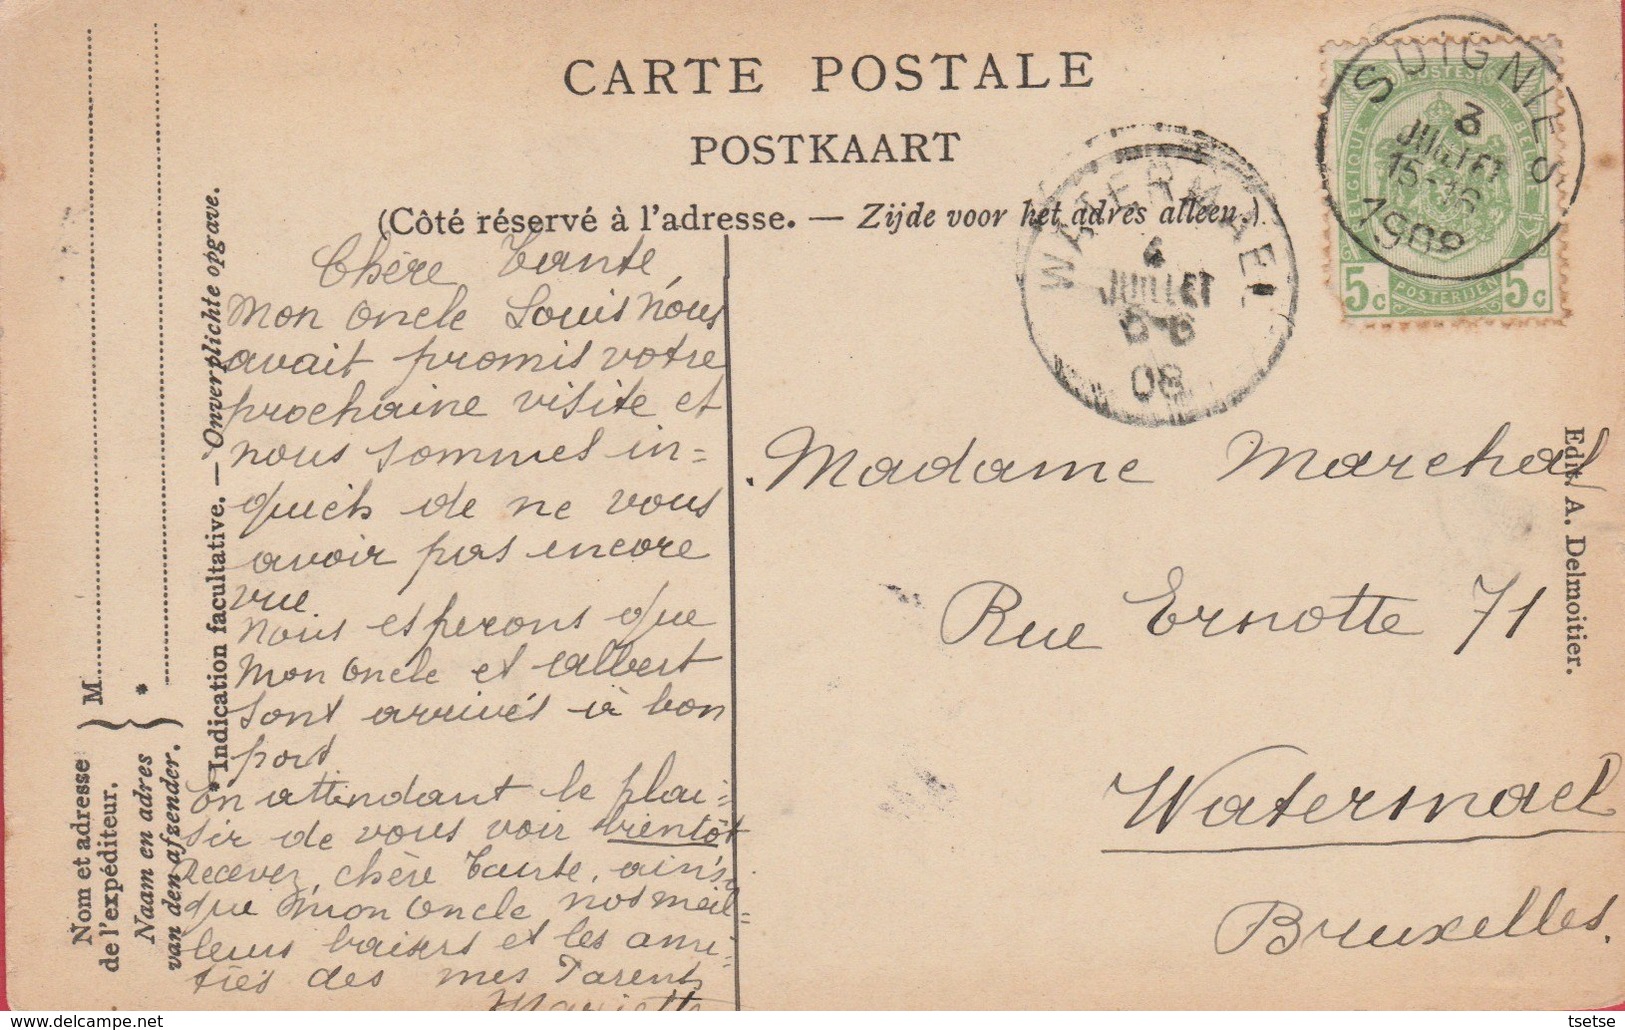 CARTE POSTALE
POSTKAART
(Côté réservé à l'adresse. — Zijde voor het adres alleen.)
SOIGNIES
3
JUILLET
15-16
1908
POSTES
BELGIQUE
BELGIE
5c POSTERIJEN 5c
WATERMAEL
4
JUILLET
08
Chère Tante,
Mon oncle Louis nous
avait promis votre
prochaine visite et
nous sommes in=
quiets de ne vous
avoir pas encore
vue.
Nous esperons que
Mon Oncle et Albert
sont arrivés à bon
port
En attendant le plai=
sir de vous voir bientôt
Recevez, chère Tante, ainsi
que Mon Oncle, nos meil=
leurs baisers et les ami=
tiés des mes Parents
Mariette
Madame Marchal
Rue Ernotte 71
Watermael
Bruxelles.
Edit. A. Delmoitier.
* Indication facultative. — Onverplichte opgave.
M
*
Nom et adresse
de l'expéditeur.
Naam en adres
van den afzender.
delcampe.net
tsetse